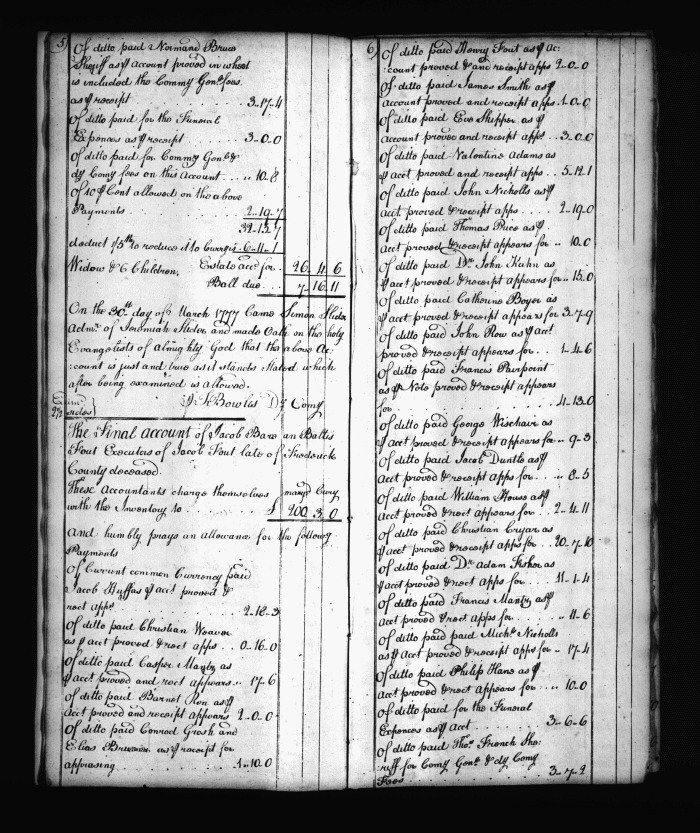 5
Of ditto paid Normand Bruce
Sheriff as ⅌ account proved in which
is included the Commy Genl. fees
as ⅌ receipt .... 3..17..4
Of ditto paid for the Funeral
Expences as ⅌ receipt ... 3..0..0
Of ditto paid for Commy Genl. &
dy Comy fees on this Account ... 10..8
Of 10 ⅌ Cent allowed on the above
Payments ... 2..19..7
32..12..7
deduct 1/5th to reduce it to Currcy .. 6..11..1
Widow & 6 Children, Estate acct. for .. 26..4..6
Ball due ... 7..16..11
On the 30th day of March 1777 Came Simon Slider
Admr. of Jeremiah Slider and made Oath on the holy
Evangelists of Almighty God that the above Ac:
:count is just and true as it stands stated which
after being examined is allowed.
Bowles Dy Comy
The Final account of Jacob Bare an Baltis
Fout Executors of Jacob Fout late of Frederick
County deceased.
These Accountants charge themselves maryd Curry
with the Inventory to ..... £ 200..3..0
And humbly prays an allowance for the followg
Payments
Of Current common Currency paid
Jacob as ⅌ acct proved &
rect appr. ... 2..18..3
Of ditto paid Christian Weaver
as ⅌ acct proved & rect apps ... 0..16..0
Of ditto paid Casper Mantz as
⅌ acct proved and rect appears .. 17..6
Of ditto paid Barnet Ren as ⅌
acct proved and receipt appears 2..0..0
Of ditto paid Conrod Grosh and
Elias as ⅌ receipt for
appraising ... 1..10..0
6
Of ditto paid Henry Fout as ⅌ Ac:
:count proved & and receipt apps 2..0..0
Of ditto paid James Smith as ⅌
account proved and receipt apps. 1..0..0
Of ditto paid Eve Shipper as ⅌
account proved and receipt apps. .. 3..0..0
Of ditto paid Valentine Adams as
⅌ acct proved and receipt apps ... 5..12..1
Of ditto paid John Nicholls as ⅌
acct proved & receipt apps .... 2..19..0
Of ditto paid Thomas Price as ⅌
acct proved & receipt appears for .. 10..0
Of ditto paid Dr. John Kuhn as
⅌ acct proved & receipt appears for .. 15..0
Of ditto paid Catherine Boyer as
⅌ acct proved & receipt appears for 3..7..9
Of ditto paid John Row as ⅌ acct
proved & receipt appears for ... 1..4..6
Of ditto paid Francis Pairpoint
as ⅌ Note proved & receipt appears
for ..... 4..13..0
Of ditto paid George Wischair as
⅌ acct proved & receipt appears for .. 9..3
Of ditto paid Jacob Duntle as ⅌
Acct proved & receipt apps for .. 8..5
Of ditto paid William House as ⅌
Acct proved & rect appears for ... 2..4..11
Of ditto paid Christian Cryar as
⅌ acct proved & receipt apps for ... 20..7..10
Of ditto paid Dr. Adam Fisher as
⅌ acct proved & rect apps for ... 11..1..4
Of ditto paid Francis Mantz as ⅌
acct proved & rect apps for .... 11..6
Of ditto paid paid Michl. Nicholls
as ⅌ acct proved & receipt apps for .. 17..4
Of ditto paid Philip Hane as ⅌
Acct proved & rect appears for ... 10..0
Of ditto paid for the Funeral
Expences as ⅌ Acct ..... 3..6..6
Of ditto paid Thos. French She:
:riff for Comy Genl. & dy Comy
Fees ..... 3..7..2